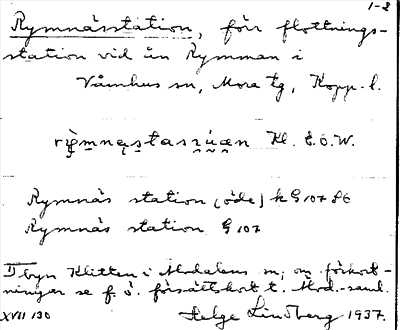 1-2
Rymnässtation, förr flottnings-
station vid ån Rymman i
Våmhus sn, Mora tg, Kopp. l.
Kl. E.Ö.W.
Rymnäs station (öde) k G 107 86
Rymnäs station G 107
I byn Klitten i Älvdalens sn; om förkort-
ningar se f. ö. försättskort t. saml.
XVII 130 Helge Lindberg 1937.